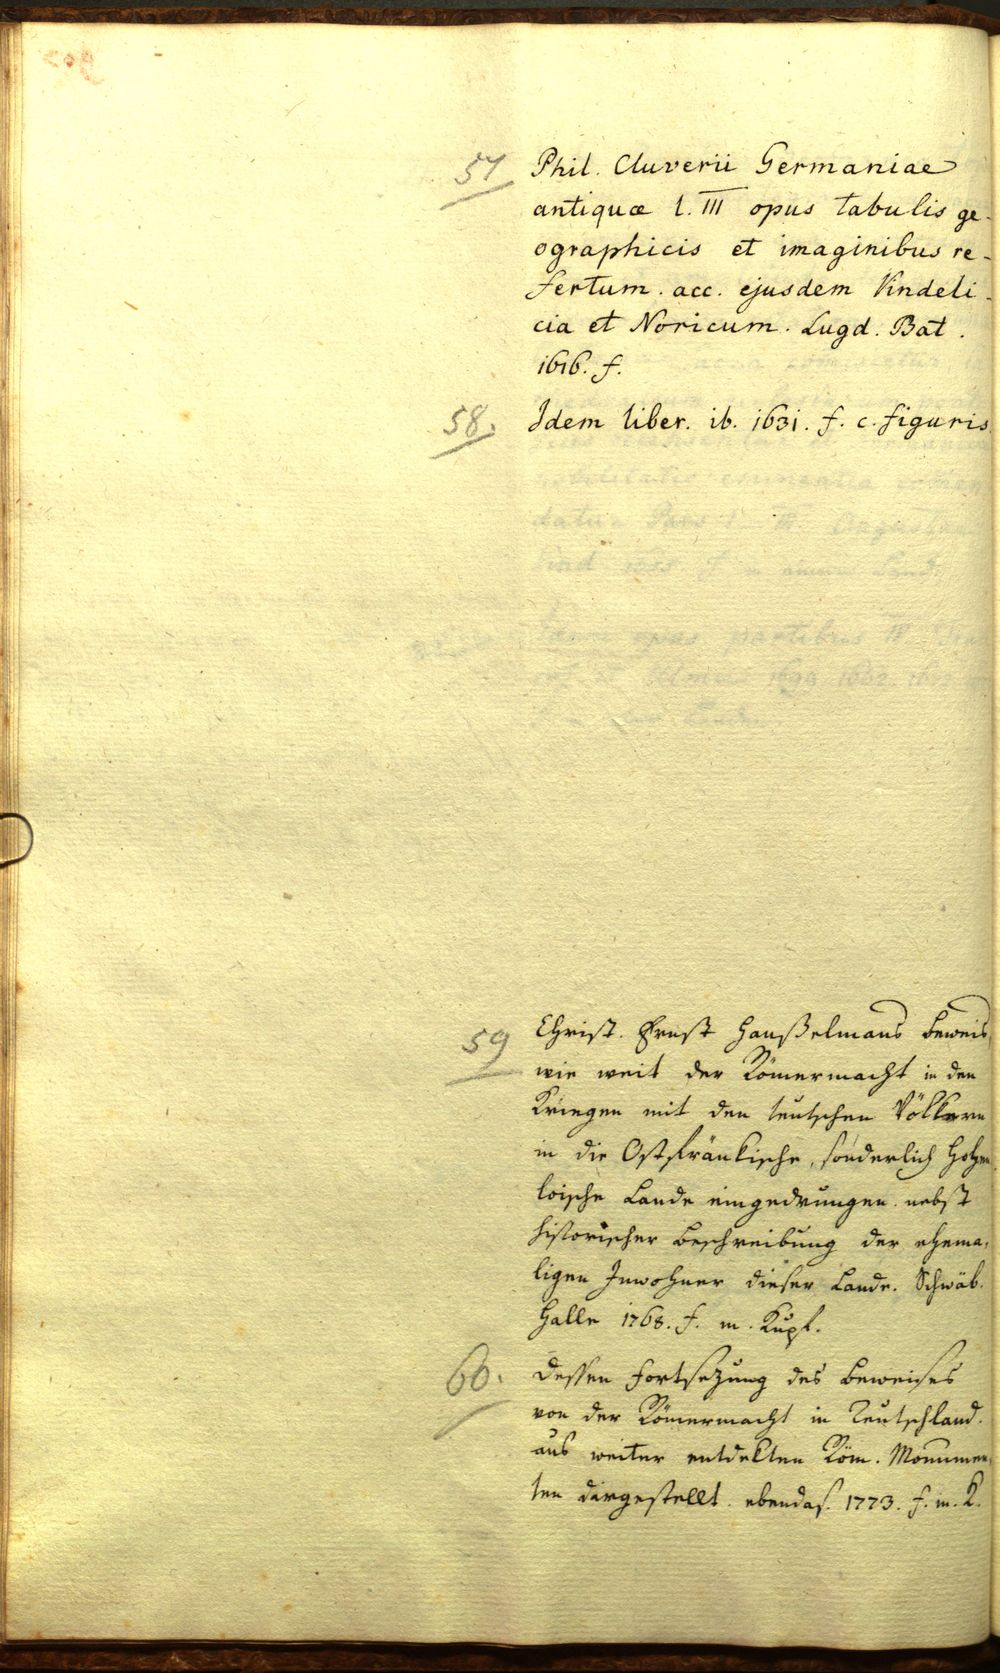 57 Phil. Cluverii Germaniae
antiquæ l. III opus tabulis ge-
ographicis et imaginibus re-
fertum. acc. ejusdem Vindeli-
cia et Noricum. Lugd. Bat.
1616. f.
58. Idem liber. ib. 1631. f. c. figuris.
59 Christ. Ernst Hanßelmans Beweis
wie weit der Römermacht in den
Kriegen mit den teutschen Völkern
in die Ostfränkische, sonderlich Hohen-
loische Lande eingedrungen. nebst
historischer Beschreibung der ehema-
ligen Inwohner dieser Lande. Schwäb.
Halle 1768. f. m. Kupf.
60. Dessen Fortsezung des Beweises
von der Römermacht in Teutschland.
aus weiter entdekten Röm. Monumen-
ten dargestellt. ebendas. 1773. f. m. K.